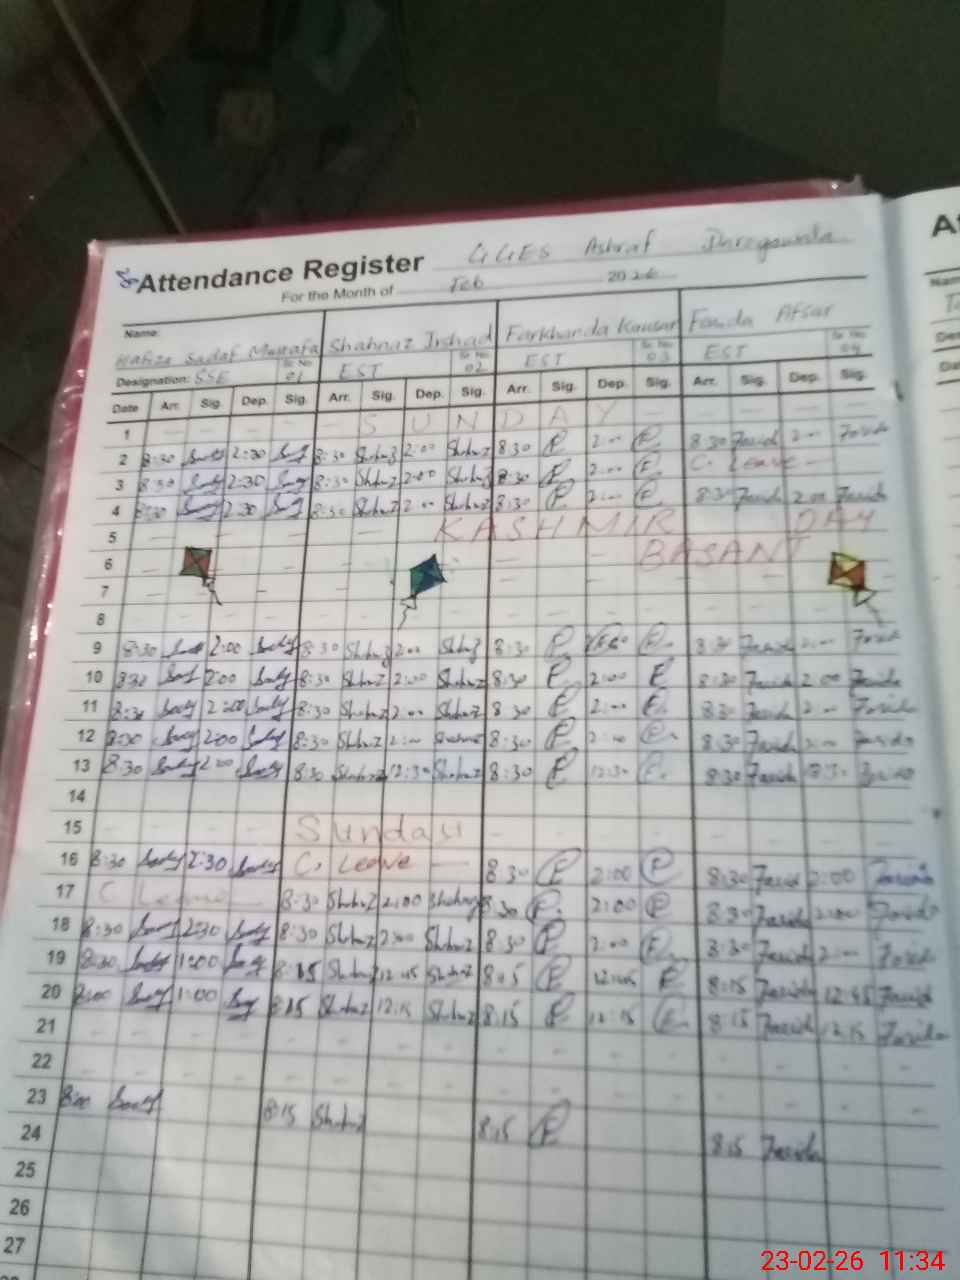 Attendance Register GGES Ashraf
For the Month of Feb 2026
Name:
Hafiza Sadaf Mustafa Shahnaz Irshad Farkhanda Kausar Farida Afsar
Designation: SSE Sr. No. 01 EST Sr. No. 02 EST Sr. No. 03 EST Sr. No. 04
Date Arr. Sig. Dep. Sig. Arr. Sig. Dep. Sig. Arr. Sig. Dep. Sig. Arr. Sig. Dep. Sig.
1 SUNDAY
2 8:30 2:30 8:30 Shahnaz 2:00 Shahnaz 8:30 F 2:00 F 8:30 Farida 2:00 Farida
3 8:30 2:30 8:30 Shahnaz 2:00 Shahnaz 8:30 F 2:00 F C. Leave
4 8:30 2:30 8:30 Shahnaz 2:00 Shahnaz 8:30 F 2:00 F 8:30 Farida 2:00 Farida
5 KASHMIR DAY
6 BASANT
7
8
9 8:30 2:00 8:30 Shahnaz 2:00 Shahnaz 8:30 F F 8:30 Farida 2:00 Farida
10 8:30 2:00 8:30 Shahnaz 2:00 Shahnaz 8:30 F 2:00 F 8:30 Farida 2:00 Farida
11 8:30 2:00 8:30 Shahnaz 2:00 Shahnaz 8:30 F 2:00 F 8:30 Farida 2:00 Farida
12 8:30 2:00 8:30 Shahnaz 2:00 Shahnaz 8:30 F 2:00 F 8:30 Farida 2:00 Farida
13 8:30 2:00 8:30 Shahnaz 12:30 Shahnaz 8:30 F 12:30 F 8:30 Farida 12:30 Farida
14
15 Sunday
16 8:30 2:30 C. Leave 8:30 F 2:00 F 8:30 Farida 2:00 Farida
17 C Leave 8:30 Shahnaz 2:00 Shahnaz 8:30 F 2:00 F 8:30 Farida 2:00 Farida
18 8:30 2:30 8:30 Shahnaz 2:00 Shahnaz 8:30 F 2:00 F 8:30 Farida 2:00 Farida
19 8:30 1:00 8:15 Shahnaz 12:45 Shahnaz 8:15 F 12:45 F 8:15 Farida 12:45 Farida
20 8:00 1:00 8:15 Shahnaz 12:15 Shahnaz 8:15 F 12:15 F 8:15 Farida 12:15 Farida
21
22
23 8:00 8:15 Shahnaz 8:15 F 8:15 Farida
24
25
26
27
23-02-26 11:34